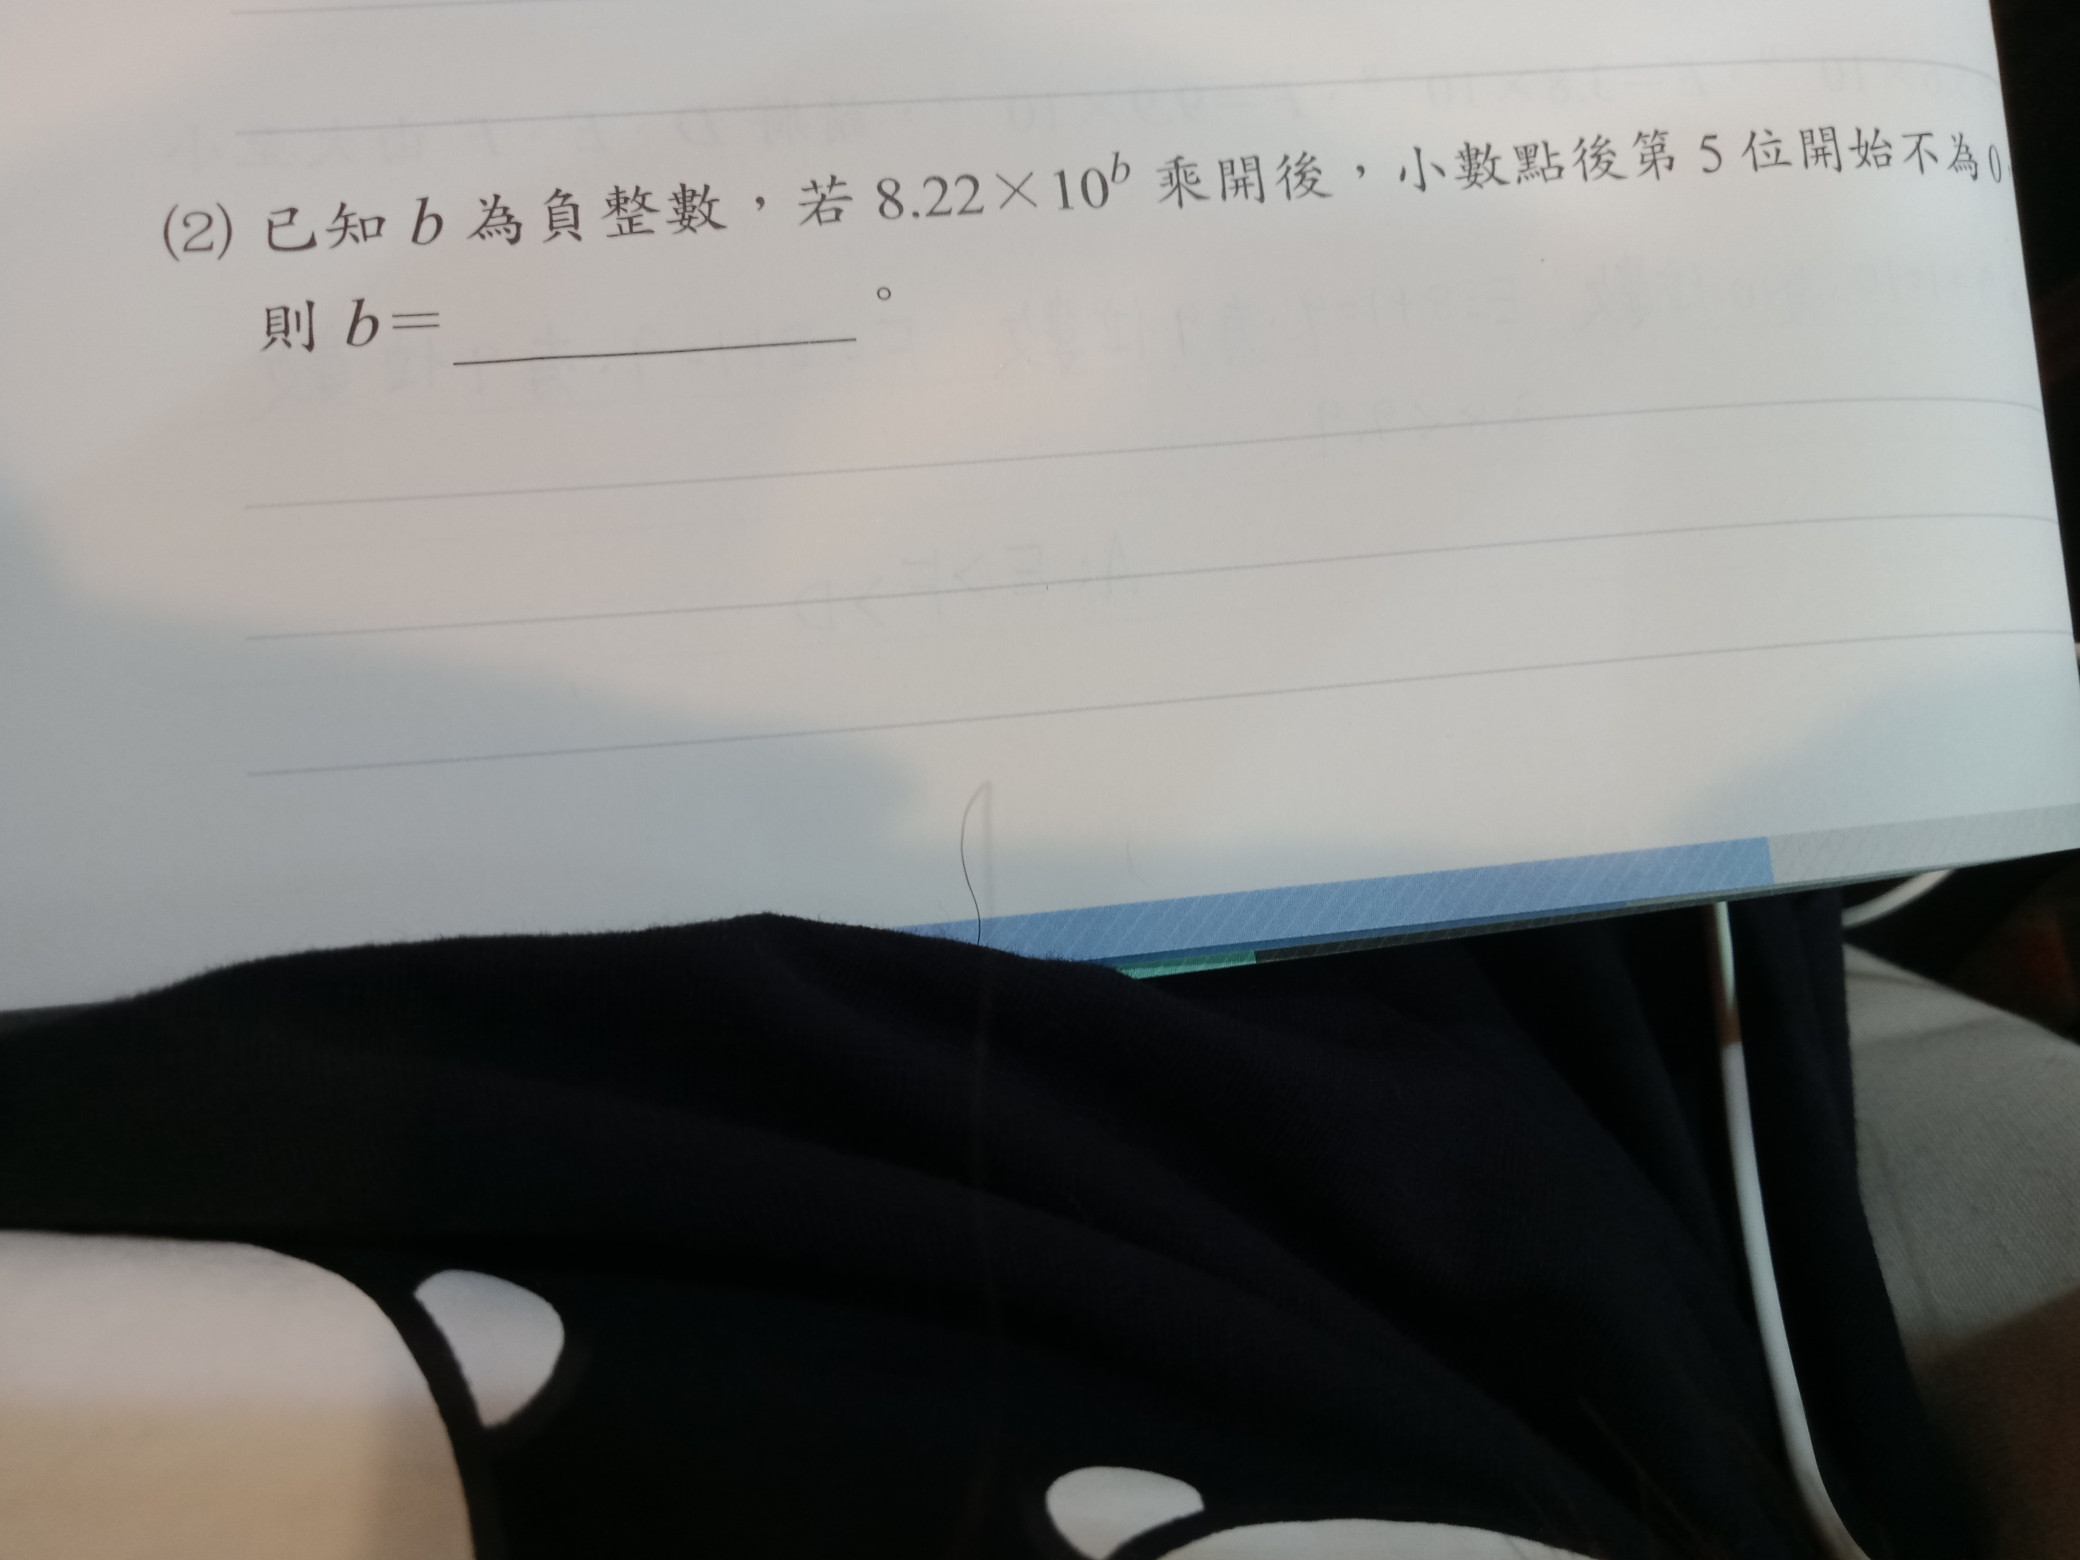 (2) 已知 b 為負整數，若 8.22×10^b 乘開後，小數點後第 5 位開始不為 0，
則 b=________。